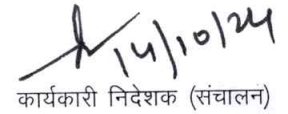 14/10/24
कार्यकारी निदेशक (संचालन)